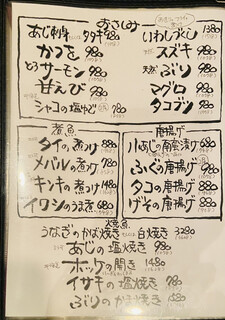 おさしみ
あじ刺身 タタキ 880
いわしづくし 1380
かつを 980
スズキ 980
とろサーモン 980
天然ぶり 980
甘えび 980
マグロ 980
シャコの塩ゆで 980
タコブツ 980
煮魚
タイの煮つけ 880
メバルの煮つけ 980
キンキの煮つけ 1480
イワシのうま煮 680
唐揚げ
小あじの南蛮漬け 680
ふぐの唐揚げ 980
タコの唐揚げ 880
げその唐揚げ 880
焼魚
うなぎのかば焼き 白焼き 3280
あじの塩焼き 980
ホッケの開き 1480
イサキの塩焼き 980
ぶりのかま焼き